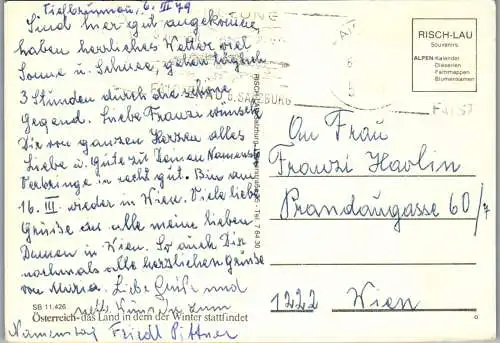 Tiefbrunnau, 6. III 79
Sind hier gut angekommen,
haben herrliches Wetter viel
Sonne u. Schnee, gehen täglich
3 Stunden durch die schöne
Gegend. Liebe Franzi wünsche
Dir von ganzen Herzen alles
Liebe u. Gute zu Deinem Namenstag
Verbringe ihn recht gut. Bin am
16. III wieder in Wien. Viele liebe
Grüße an alle meine lieben
Damen in Wien. So auch Dir
nochmals alle herzlichen Grüße
von Maria. Liebe Grüße und
nette Wünsche zum
Namenstag Friedl Pittner
SB 11.426
Österreich - das Land in dem der Winter stattfindet
SALZBURG
RISCH-LAU
Tel. 7 64 30
RISCH-LAU
Souvenirs
ALPEN-Kalender
Diaserien
Farbmappen
Blumensamen
An Frau
Franzi Havlin
Prandaugasse 60/7
1222 Wien